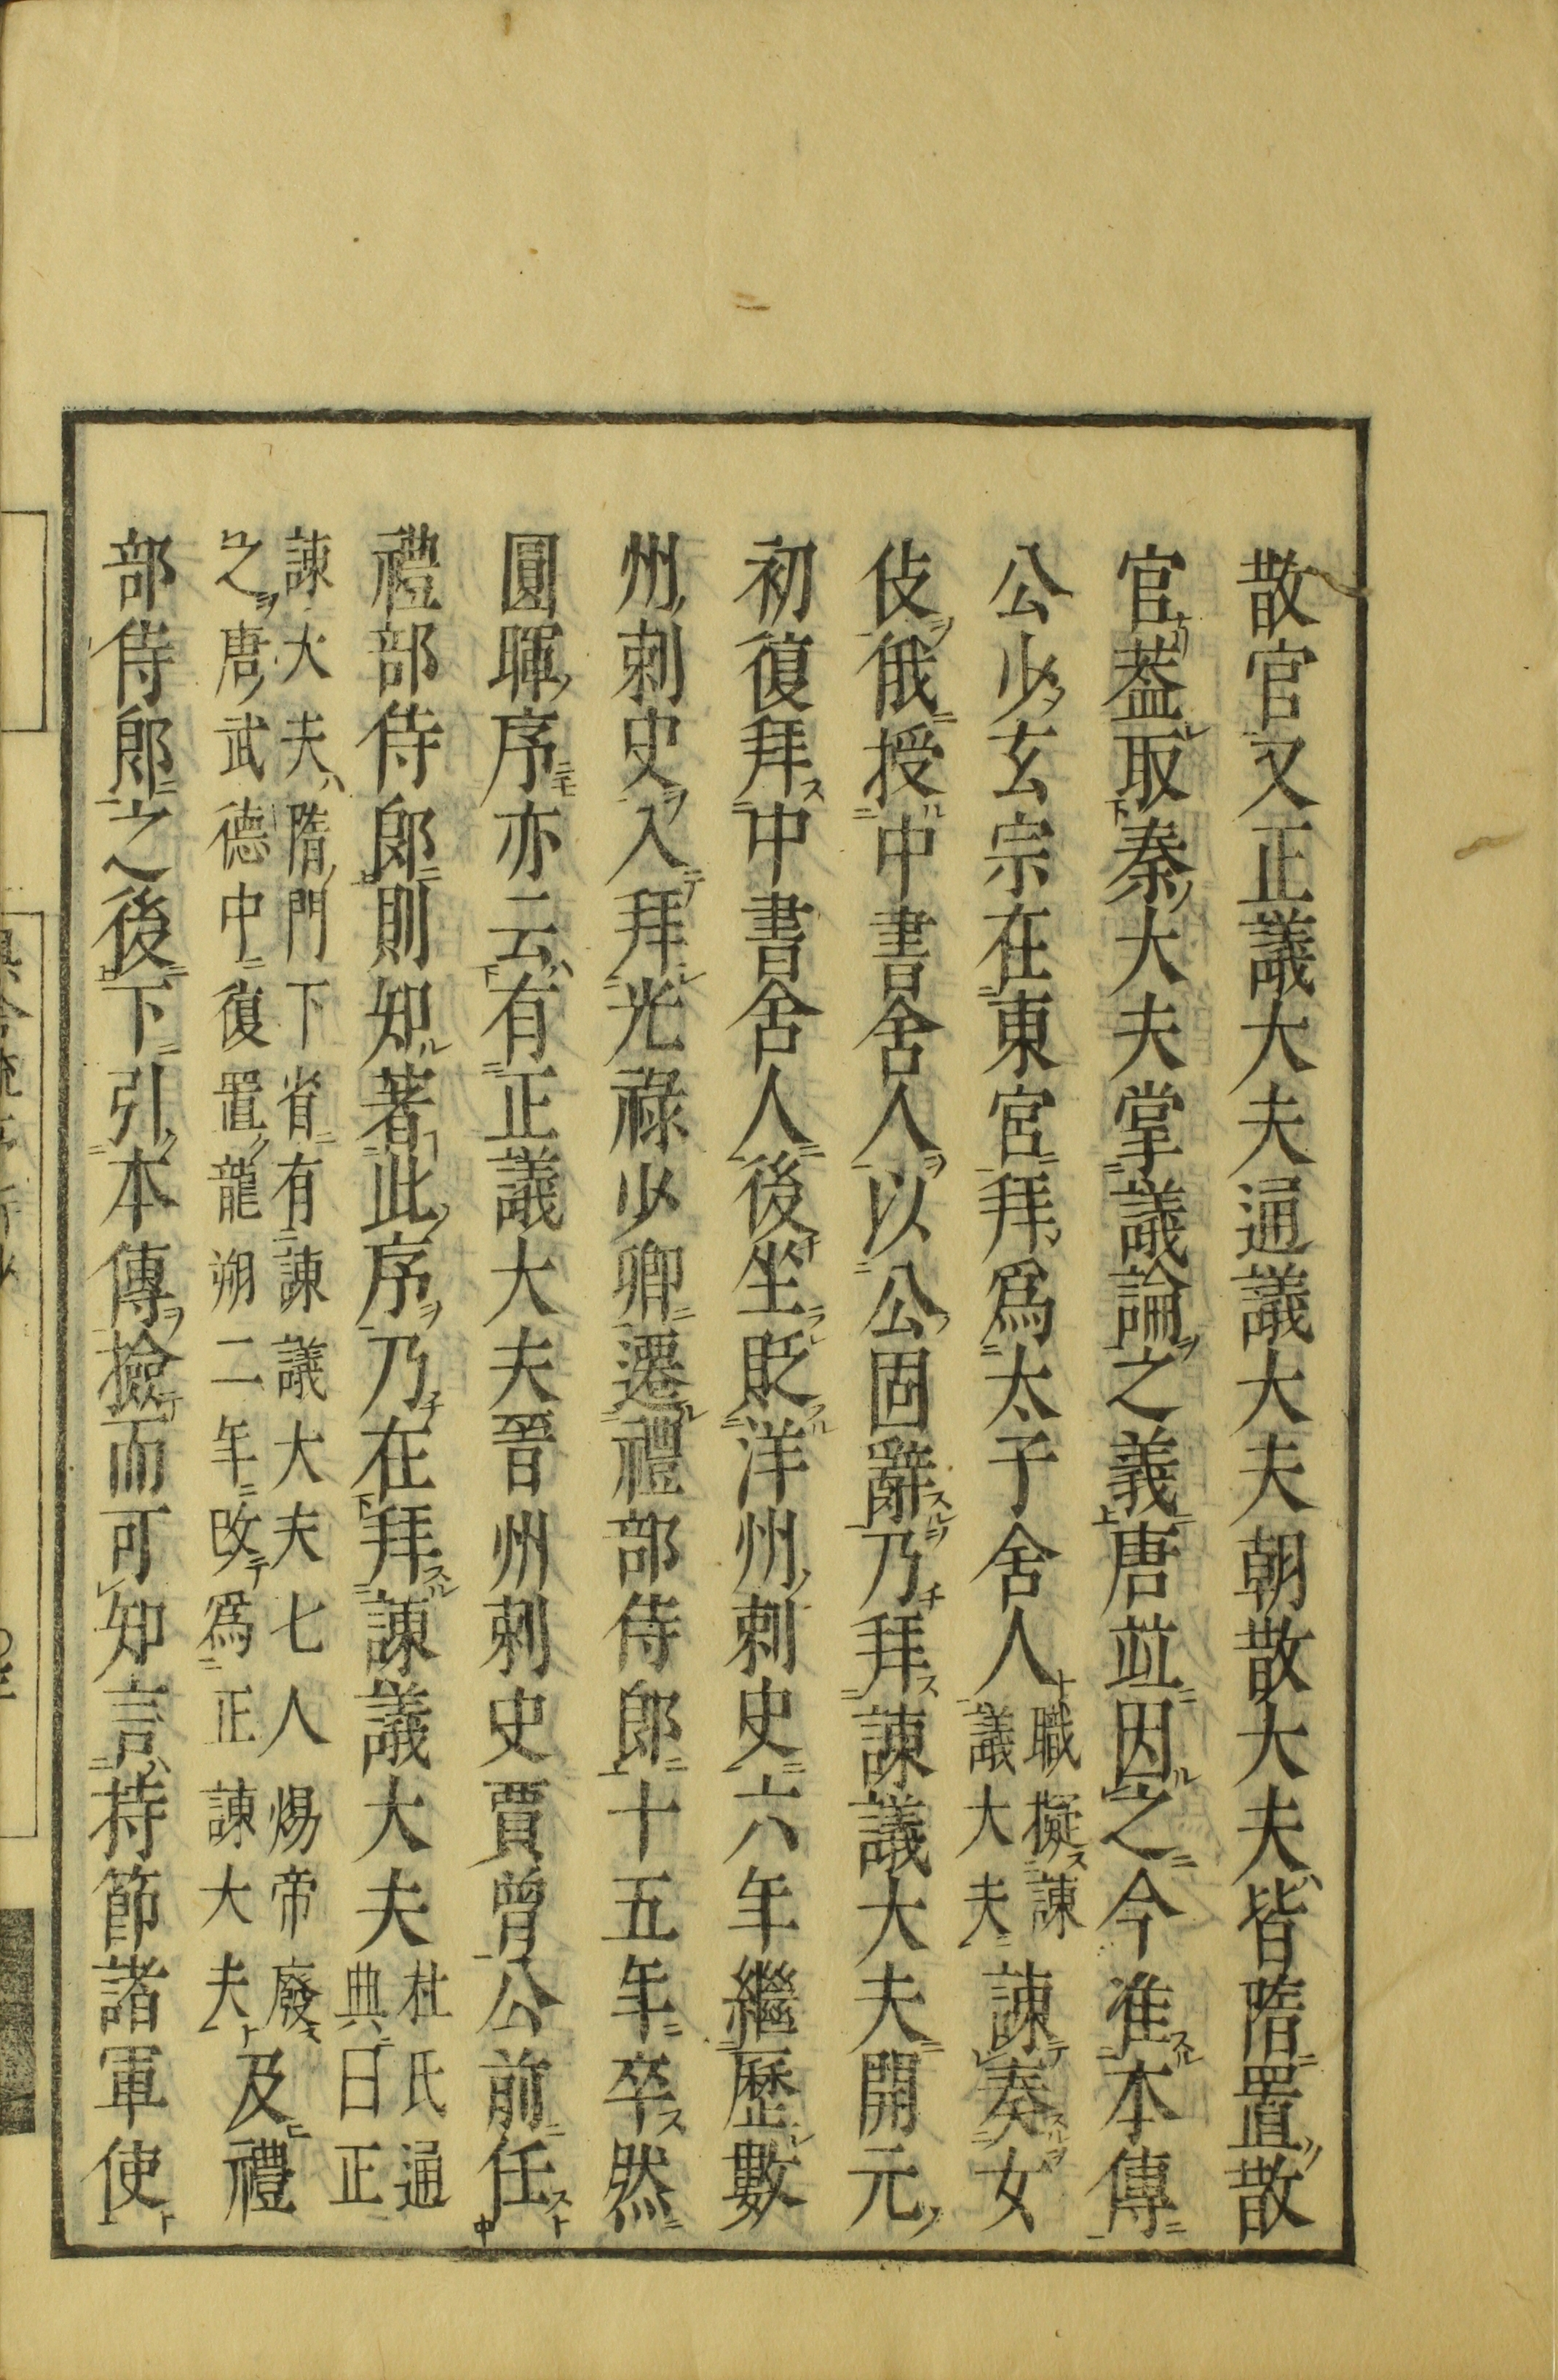 散官又正議大夫通議大夫朝散大夫皆隋置散
官蓋取秦大夫掌議論之義唐並因之今准本傳
公少玄宗在東宮拜爲太子舍人職擬諫議大夫諫奏女
伎俄授中書舍人以公固辭乃拜諫議大夫開元
初復拜中書舍人後坐貶洋州刺史六年繼歷數
州刺史入拜光祿少卿遷禮部侍郎十五年卒然
圓暉序亦云有正議大夫晉州刺史賈曾公前任
禮部侍郎則知著此序乃在拜諫議大夫杜氏通典曰正
諫大夫隋門下省有諫議大夫七人煬帝廢之唐武德中復置龍朔二年改爲正諫大夫及禮
部侍郎之後下引本傳撿而可知言持節諸軍使